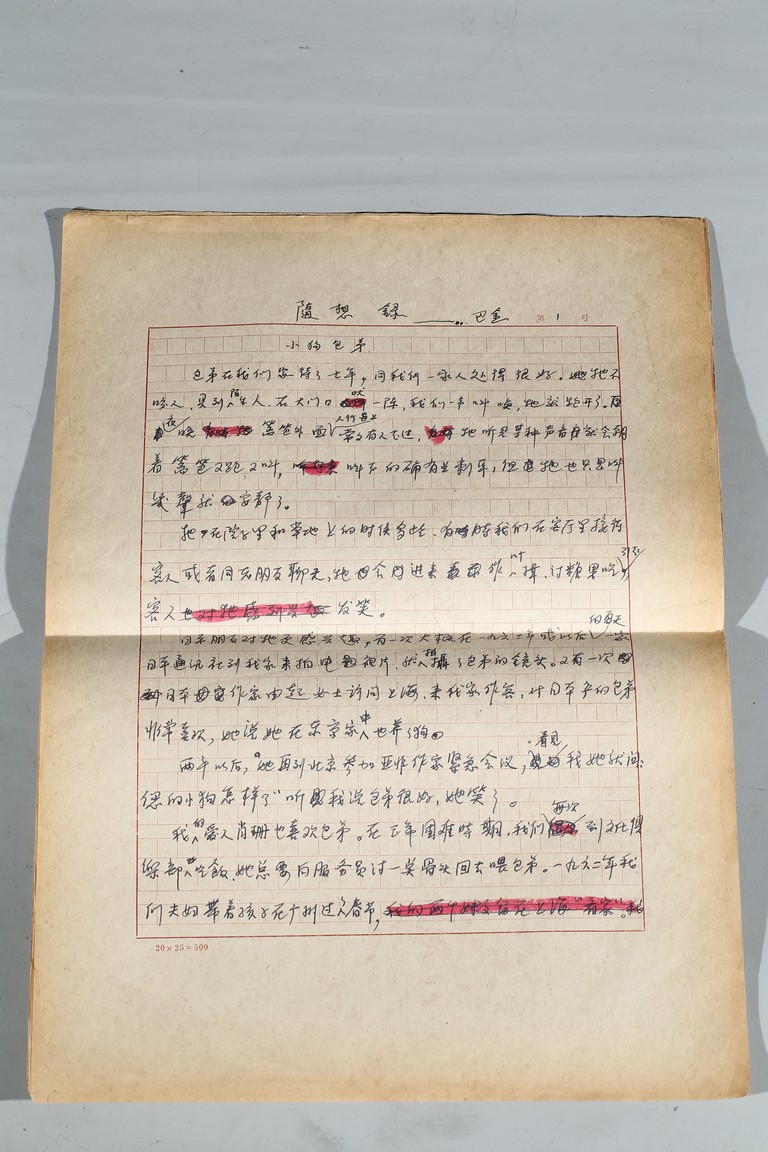 随想录——..巴金 第 1 号
小狗包弟
包弟在我们家待了七年，同我们一家人处得很好。牠不
咬人，见到陌生人，在大门口吠一阵，我们一声叫唤，牠就跑开了。
夜晚篱笆外面人行道上常常有人走过，牠听见某种声音就会朝
着篱笆又跑又叫，叫声的确有些刺耳，但牠也只是叫
几声就安静了。
牠在院子里和草地上的时候多些，有时我们在客厅里接待
客人或者同老朋友聊天，牠会进来作一个揖，讨糖果吃，引起
客人发笑。
日本朋友对牠更感兴趣，有一次大概在一九六三年或以后的夏天，一家
日本通讯社到我家来拍电影片，就拍摄了包弟的镜头。又有一次
日本作家由起女士访问上海，来我家作客，对日本产的包弟
非常喜欢，她说她在东京家中也养了狗。
两年以后，她再到北京参加亚非作家紧急会议，看见我她就问：
您的小狗怎样？听我说包弟很好，她笑了。
我的爱人肖珊也喜欢包弟。在三年困难时期，我们每次到文化俱
乐部去吃饭，她总要向服务员讨一些骨头回去喂包弟。一九六二年我
们夫妇带着孩子在广州过了春节，
20×25=500